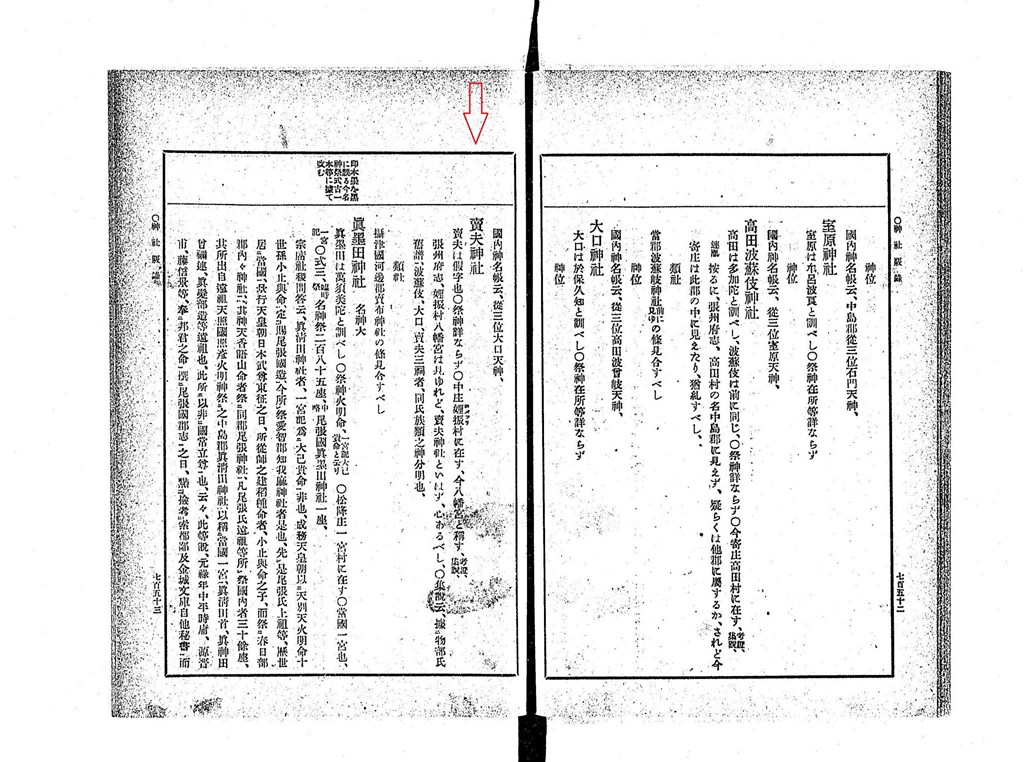 神位
國內神名帳云、中島郡從三位石門天神、
室原神社
室原は牟呂波良と訓べし〇祭神在所等詳ならず
神位
國內神名帳云、從三位室原天神、
高田波蘇伎神社
高田は多加陀と訓べし、波蘇伎は前に同じ、〇祭神詳ならず〇今寄庄高田村に在す、考證、集說、
連胤 按るに、張州府志、高田村の名中島郡に見えず、疑らくは他郡に屬するか、されど今
寄庄は此郡の中に見えたり、猶糺すべし、
類社
當郡波蘇岐神社前に見ゆの條見合すべし
神位
國內神名帳云、從三位高田波曾岐天神、
大口神社
大口は於保久知と訓べし〇祭神在所等詳ならず
神位
〇神社覈錄
七百五十二
國內神名帳云、從三位大口天神、
賣夫神社
賣夫は假字也〇祭神詳ならず〇中庄姪振村に在す、今八幡宮と稱す、考證、集說、
張州府志、姪振村八幡宮は見ゆれど、賣夫神社といはず、心あるべし、〇集說云、據物部氏
舊譜、波蘇伎、大口、賣夫三祠者、同氏族類之神分明也、
類社
攝津國河邊郡賣布神社の條見合すべし
印本墨を黑に誤る今名神祭式古一本等に據て改む
眞墨田神社 名神大
眞墨田は萬須美陀と訓べし〇祭神火明命、一宮記大己貴命と云り 〇松降庄一宮村に在す〇當國一宮也、
一宮記 〇式三、臨時祭 名神祭二百八十五座、中略 尾張國眞墨田神社一座、
宗廟社稷問答云、眞淸田神社者、一宮記爲大己貴命非也、成務天皇朝以天別天火明命十
世孫小止與命定賜尾張國造、今所祭愛智郡知我麻神社者是也、先是尾張氏上祖等、歷世
居當國、景行天皇朝日本武尊東征之日、所從師之建稻種命者、小止與命之子、而祭春日部
郡內々神社、其神天香語山命者祭同郡尾張神社、凡尾張氏遠祖等所祭國內者三十餘座、
其所出自遠祖天照國照彥火明神祭之中島郡眞淸田神社、以稱當國一宮、眞淸田首、眞神田
曾禰連、眞髮部造等遠祖也、此所以非國常立尊也、云々、此等說、元祿年中平時庸、源晋
甫、藤信景等、奉邦君之命撰尾張國郡志之日、點撿考索都鄙及金城文庫自他秘書、而
〇神社覈錄
七百五十三